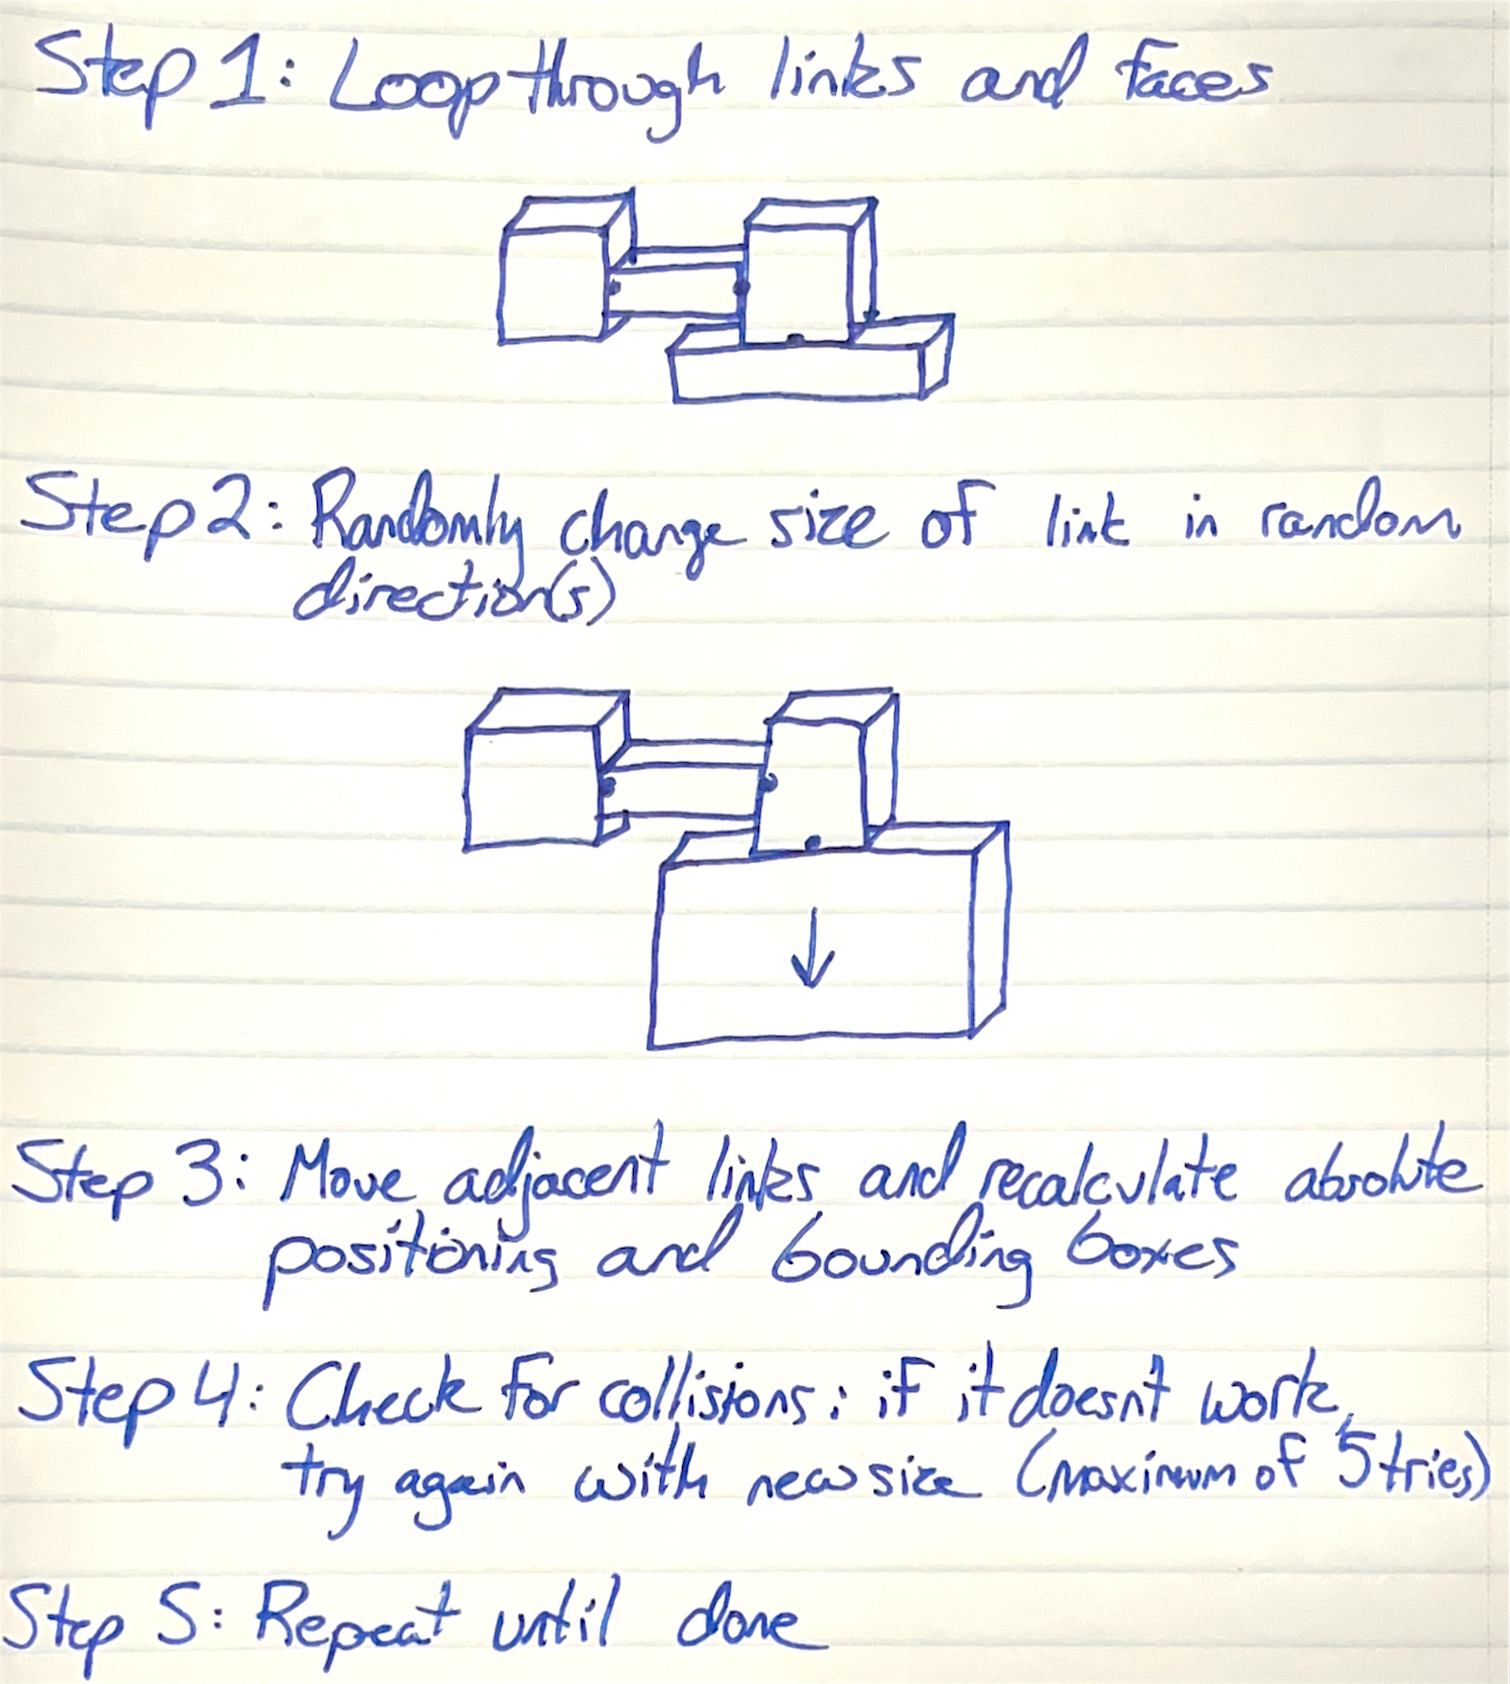 Step 1: Loop through links and faces
Step 2: Randomly change size of link in random
direction(s)
Step 3: Move adjacent links and recalculate absolute
positioning and bounding boxes
Step 4: Check for collisions; if it doesn't work,
try again with new size (maximum of 5 tries)
Step 5: Repeat until done